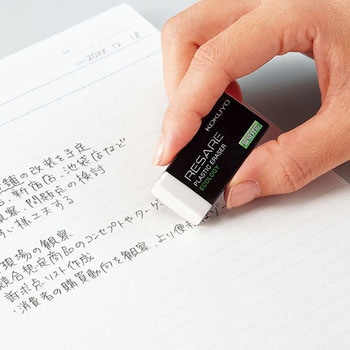 20XX 12 18
の改装を予定
新宿店、池袋店など
問題点の検討
い様工夫する
現場の観察
競合規定商品のコンセプトやターゲ
新求点リスト作成
消費者の購買動向を観察 より便利
KOKUYO
RESARE
PLASTIC ERASER
ECOLOGY